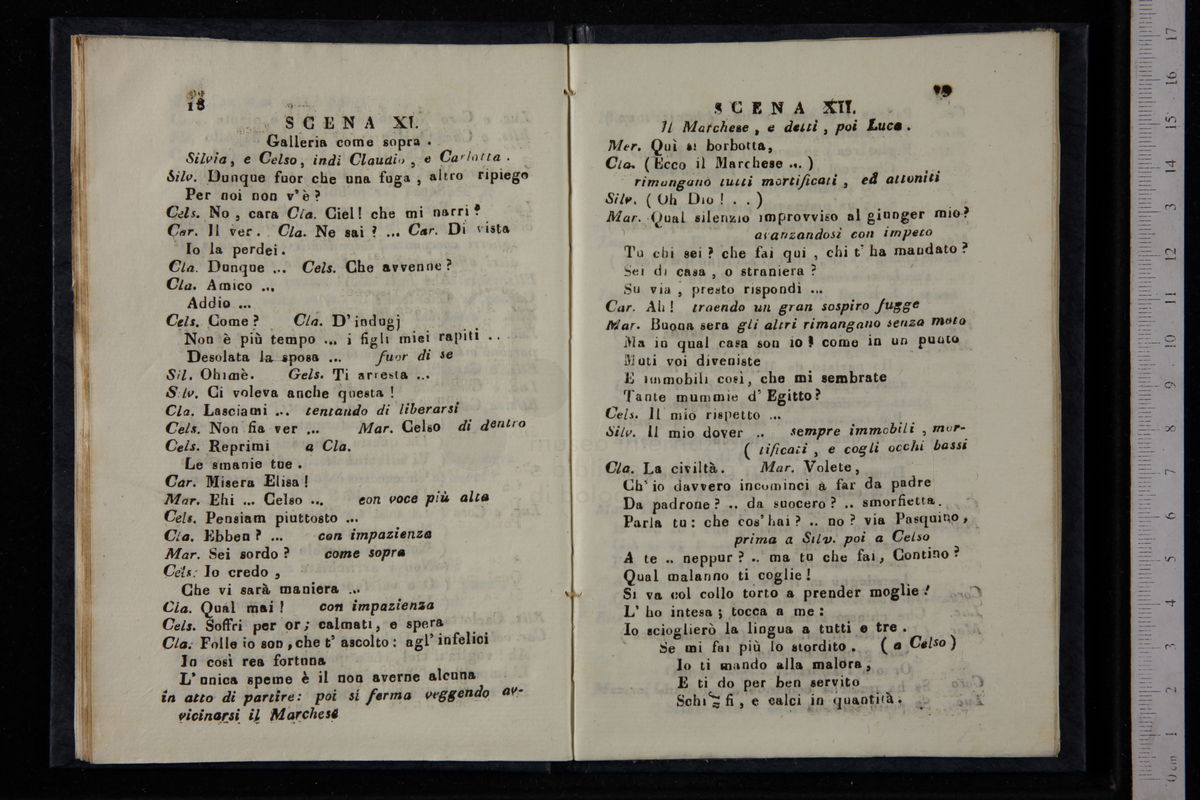 18
SCENA XI.
Galleria come sopra .
Silvia, e Celso, indi Claudio, e Carlotta .
Silv. Dunque fuor che una fuga , altro ripiego
Per noi non v'è ?
Cels. No , cara Cla. Ciel! che mi narri ?
Car. Il ver. Cla. Ne sai ? ... Car. Di vista
Io la perdei.
Cla. Dunque ... Cels. Che avvenne ?
Cla. Amico ...
Addio ...
Cels. Come ? Cla. D' indugj
Non è più tempo ... i figli miei rapiti . . .
Desolata la sposa ... fuor di se
Sil. Ohimè. Gels. Ti arresta ...
Silv. Ci voleva anche questa !
Cla. Lasciami ... tentando di liberarsi
Cels. Non fia ver ... Mar. Celso di dentro
Cels. Reprimi a Cla.
Le smanie tue .
Car. Misera Elisa !
Mar. Ehi ... Celso ... con voce più alta
Cels. Pensiam piuttosto ...
Cla. Ebben ? ... con impazienza
Mar. Sei sordo ? come sopra
Cels. Io credo ,
Che vi sarà maniera ...
Cla. Qual mai ! con impazienza
Cels. Soffri per or; calmati, e spera
Cla. Folle io son , che t' ascolto : agl' infelici
In così rea fortuna
L' unica speme è il non averne alcuna
in atto di partire: poi si ferma veggendo av-
vicinarsi il Marchese
SCENA XII.
Il Marchese , e detti , poi Luca .
Mer. Quì si borbotta,
Cla. (Ecco il Marchese ... )
rimangano tutti mortificati , ed attoniti
Silv. ( Oh Dio ! . . )
Mar. Qual silenzio improvviso al giunger mio?
avanzandosi con impeto
Tu chi sei ? che fai qui , chi t' ha mandato ?
Sei di casa , o straniera ?
Su via , presto rispondi ...
Car. Ah ! traendo un gran sospiro fugge
Mar. Buona sera gli altri rimangano senza moto
Ma in qual casa son io ! come in un punto
Muti voi diveniste
E immobili così, che mi sembrate
Tante mummie d' Egitto ?
Cels. Il mio rispetto ...
Silv. Il mio dover .. sempre immobili , mor-
( tificati , e cogli occhi bassi
Cla. La civiltà. Mar. Volete,
Ch' io davvero incominci a far da padre
Da padrone ? .. da suocero ? .. smorfietta.
Parla tu : che cos' hai ? .. no ? via Pasquino,
prima a Silv. poi a Celso
A te .. neppur ? .. ma tu che fai, Contino ?
Qual malanno ti coglie !
Si va col collo torto a prender moglie !
L' ho intesa ; tocca a me :
Io scioglierò la lingua a tutti e tre .
Se mi fai più lo stordito . ( a Celso )
Io ti mando alla malora ,
E ti do per ben servito
Schiaffi , e calci in quantità .